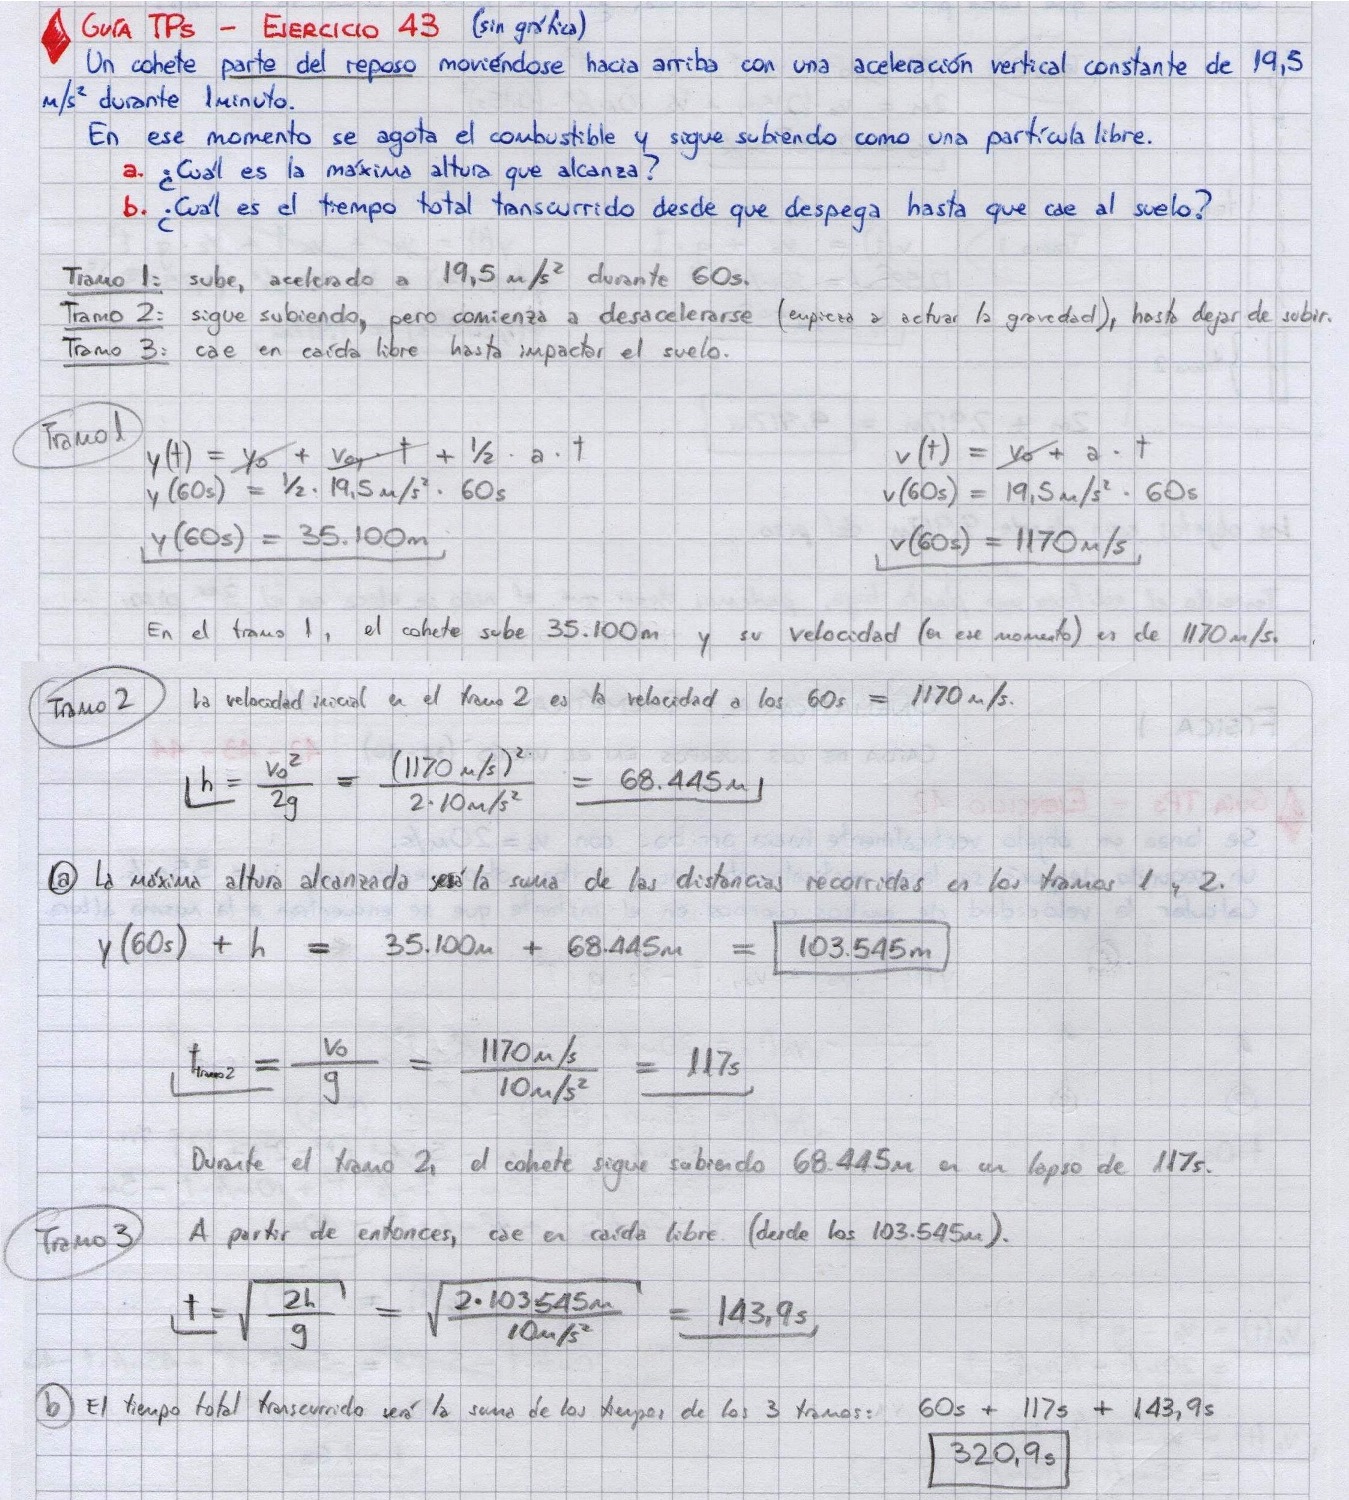 GUÍA TPs - EJERCICIO 43 (sin gráfica)
Un cohete parte del reposo moviéndose hacia arriba con una aceleración vertical constante de 19,5
m/s² durante 1minuto.
En ese momento se agota el combustible y sigue subiendo como una partícula libre.
a. ¿Cuál es la máxima altura que alcanza?
b. ¿Cuál es el tiempo total transcurrido desde que despega hasta que cae al suelo?
Tramo 1: sube, acelerado a 19,5 m/s² durante 60s.
Tramo 2: sigue subiendo, pero comienza a desacelerarse (empieza a actuar la gravedad), hasta dejar de subir.
Tramo 3: cae en caída libre hasta impactar el suelo.
Tramo 1
y(t) = y₀ + v₀y · t + ½ · a · t
v(t) = v₀ + a · t
y(60s) = ½ · 19,5 m/s² · 60s
v(60s) = 19,5 m/s² · 60s
y(60s) = 35.100m
v(60s) = 1170 m/s
En el tramo 1, el cohete sube 35.100m y su velocidad (en ese momento) es de 1170 m/s.
Tramo 2
La velocidad inicial en el tramo 2 es la velocidad a los 60s = 1170 m/s.
h = v₀²/2g = (1170 m/s)²/2·10m/s² = 68.445m
a La máxima altura alcanzada será la suma de las distancias recorridas en los tramos 1 y 2.
y(60s) + h = 35.100m + 68.445m = 103.545m
t tramo 2 = v₀/g = 1170 m/s/10 m/s² = 117s
Durante el tramo 2, el cohete sigue subiendo 68.445m en un lapso de 117s.
Tramo 3
A partir de entonces, cae en caída libre (desde los 103.545m).
t = √2h/g = √2·103545m/10m/s² = 143,9s
b El tiempo total transcurrido será la suma de los tiempos de los 3 tramos: 60s + 117s + 143,9s
320,9s